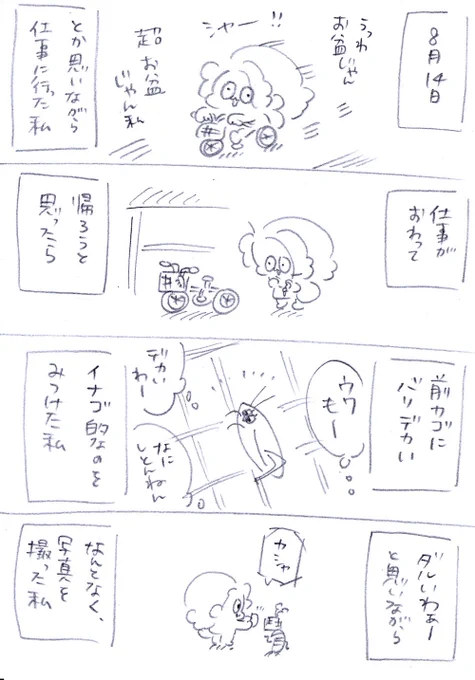 8月14日
うっわ
お盆じゃん
シャー!!
超お盆
じゃん私
とか思いながら
仕事に行った私
仕事が
おわって
帰ろうと
思ったら
前カゴに
バリデカい
ウワ
もー
デカい
わー
なに
しとんねん
イナゴ的なのを
みつけた私
ダルいわぁー
と思いながら
カシャ
なんとなく、
写真を
撮った私